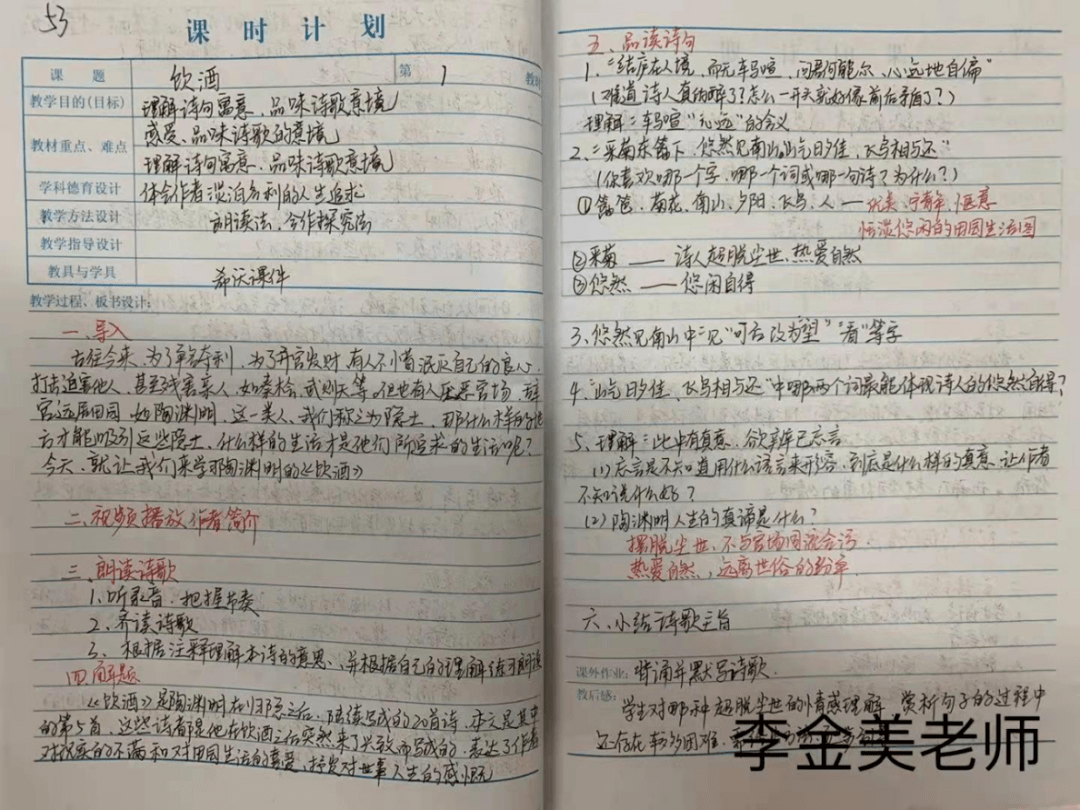 53
课时计划
课题 饮酒 第 1 教时
教学目的(目标) 理解诗句寓意、品味诗歌意境
教材重点、难点 感受、品味诗歌的意境
理解诗句寓意、品味诗歌意境
学科德育设计 体会作者淡泊名利的人生追求
教学方法设计 朗读法、合作探究法
教学指导设计
教具与学具 希沃课件
教学过程、板书设计:
一、导入
古往今来,为了争名夺利,为了升官发财,有人不惜泯灭自己的良心,
打击迫害他人,甚至残害亲人,如秦桧、武则天等。但也有人厌恶官场,辞
官远居田园,如陶渊明,这一类人,我们称之为隐士,那什么样的地
方才能吸引这些隐士,什么样的生活才是他们所追求的生活呢?
今天,就让我们来学习陶渊明的《饮酒》
二、视频播放作者简介
三、朗读诗歌
1、听录音,把握节奏
2、齐读诗歌
3、根据注释理解本诗的意思、并根据自己的理解练习朗读
四、解题
《饮酒》是陶渊明在归隐之后,陆续写成的20首诗,本文是其中
的第5首,这些诗都是他在饮酒之后突然来了兴致而写成的,表达了作者
对现实的不满和对田园生活的喜爱,抒发对世事人生的感慨
五、品读诗句
1、"结庐在人境,而无车马喧,问君何能尔,心远地自偏"
(难道诗人真的醉了?怎么一开头就好像前后矛盾了?)
理解:车马喧"心远"的含义
2、"采菊东篱下,悠然见南山。山气日夕佳,飞鸟相与还"
(你喜欢哪一个字、哪一个词或哪一句诗?为什么?)
①篱笆、菊花、南山、夕阳、飞鸟、人 — 优美、宁静、惬意
恬淡悠闲的田园生活图
②采菊 —— 诗人超脱尘世、热爱自然
③悠然 —— 悠闲自得
3、悠然见南山中"见"可否改为"望""看"等字
4、"山气日夕佳,飞鸟相与还"中哪两个词最能体现诗人的悠然自得?
5、理解:此中有真意,欲辨已忘言
(1)忘言是不知道用什么语言来形容,到底是什么样的真意,让作者
不知说什么好?
(2)陶渊明人生的真谛是什么?
摆脱尘世、不与官场同流合污
热爱自然,远离世俗的纷争
六、小结诗歌主旨
课外作业: 背诵并默写诗歌.
教后感: 学生对那种超脱尘世的情感理解,赏析句子的过程中
还存在较多困难,
李金美老师